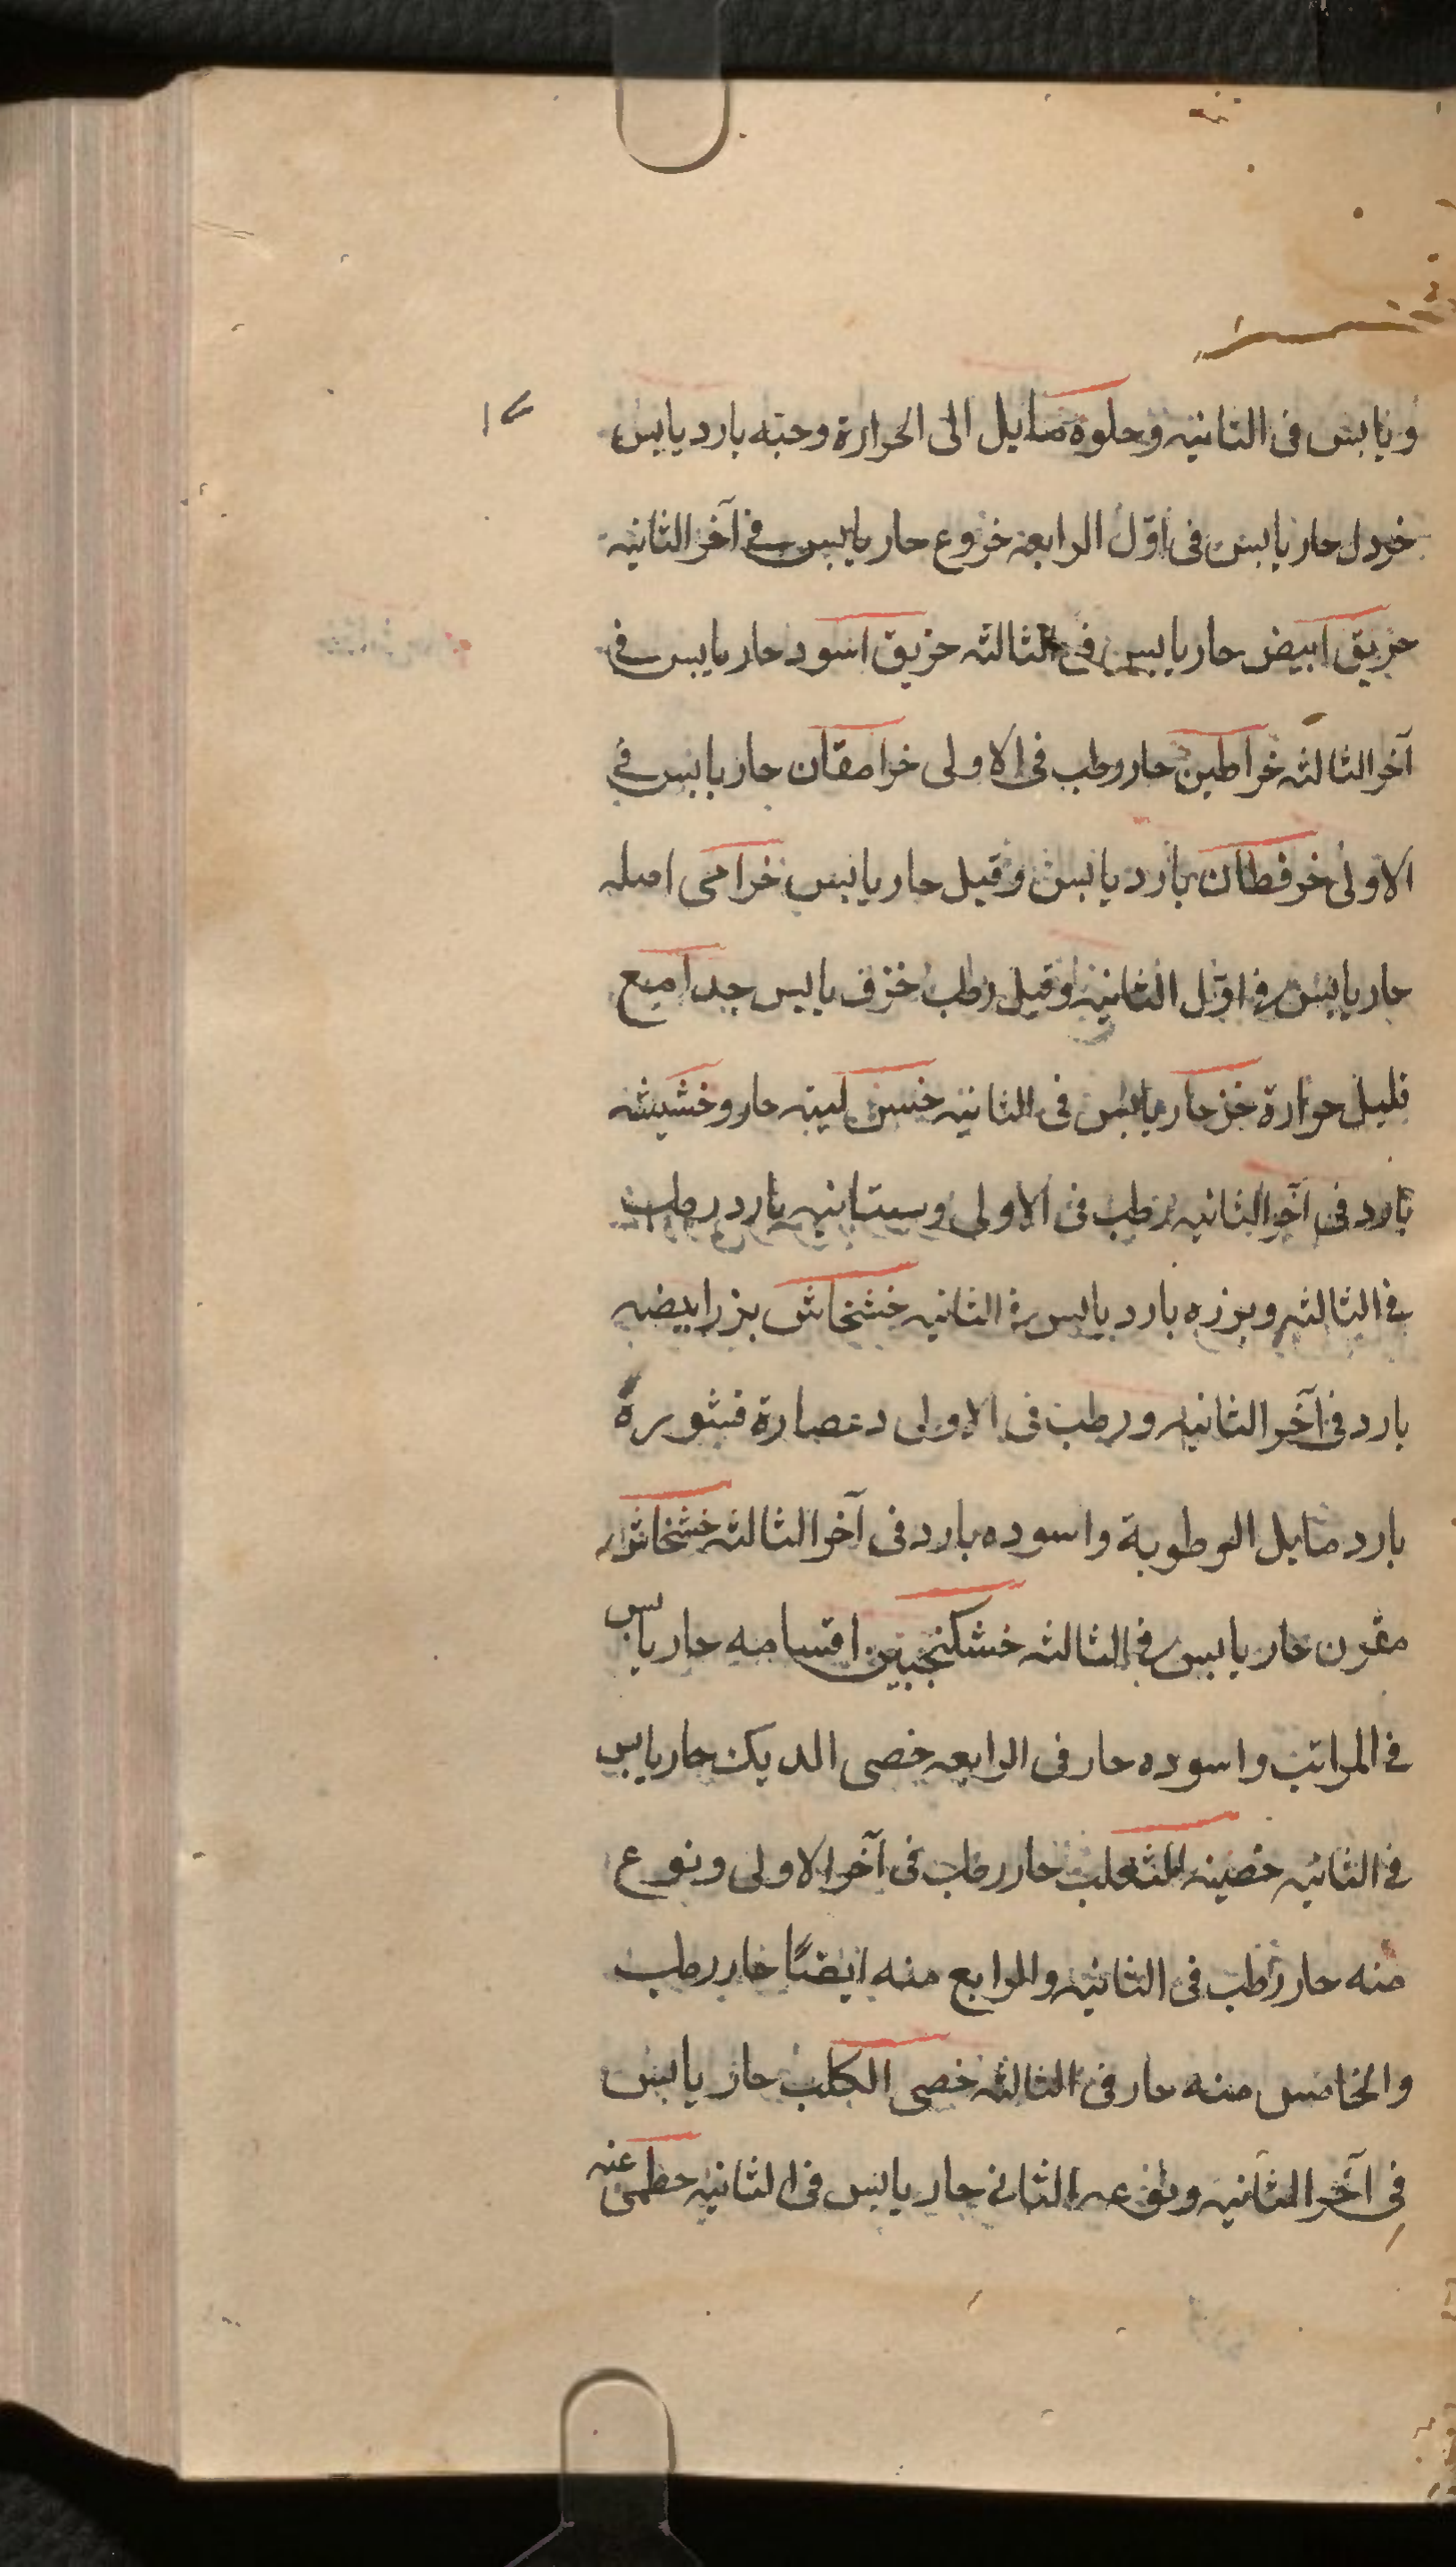 ويابس فى الثانيه وحلوه مايل الى الحرارة وحبه بارد يابس
خردل حار يابس فى اوّل الرابعه خروع حار يابس فى آخر الثانيه
خربق ابيض حار يابس فى الثالثه خربق اسود حار يابس فى
آخر الثالثه خراطين حار رطب فى الاولى خرامقان حار يابس فى
الاولى خرفطان بارد يابس وقيل حار يابس خزامى اصله
حار يابس فى اوّل الثانيه وقيل رطب خزف يابس جدا مع
قليل حرارة خز حار يابس فى الثانيه خس لبنه حار وخشيشه
بارد فى آخر الثانيه رطب فى الاولى وبستانيه بارد رطب
فى الثالثه وبزره بارد يابس فى الثانيه خشخاش بزر ابيضه
بارد فى آخر الثانيه ورطب فى الاولى وعصارة قشوره
بارد مايل الرطوبة واسوده بارد فى آخر الثالثه خشخاش
مقرن حار يابس فى الثالثه خشكنجبين اقسامه حار يابس
فى المراتب واسوده حار فى الرابعه خصى الديك حار يابس
فى الثانيه خصيه الثعلب حار رطب فى آخر الاولى ونوع
منه حار رطب فى الثانيه والرابع منه ايضًا حار رطب
والخامس منه حار فى الثالثه خصى الكلب حار يابس
فى آخر الثانيه ونوعه الثانى حار يابس فى الثانيه خطمى